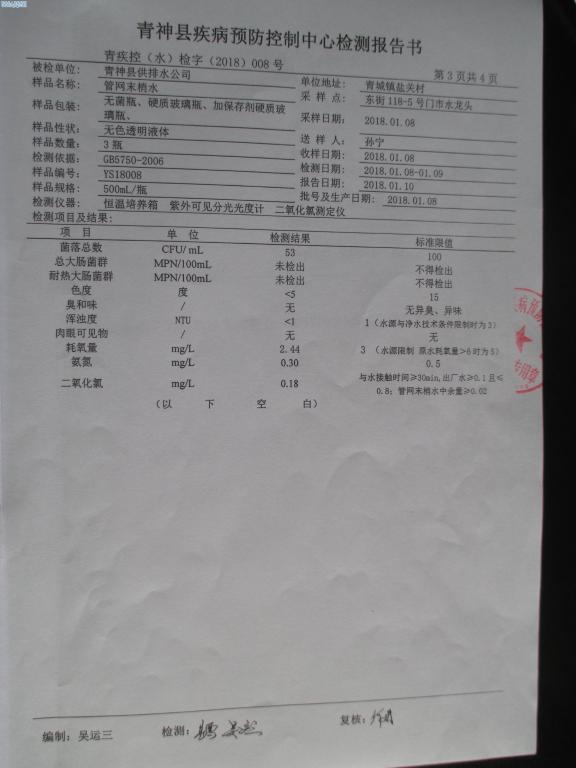 青神县疾病预防控制中心检测报告书
青疾控（水）检字（2018）008 号
第 3 页共 4 页
被检单位： 青神县供排水公司 单位地址： 青城镇盐关村
样品名称： 管网末梢水 采 样 点： 东街 118-5 号门市水龙头
样品包装： 无菌瓶、硬质玻璃瓶、加保存剂硬质玻璃瓶、 采样日期： 2018.01.08
样品性状： 无色透明液体 送 样 人： 孙宁
样品数量： 3 瓶 收样日期： 2018.01.08
检测依据： GB5750-2006 检测日期： 2018.01.08-01.09
样品编号： YS18008 报告日期： 2018.01.10
样品规格： 500mL/瓶 批号及生产日期： 2018.01.08
检测仪器： 恒温培养箱 紫外可见分光光度计 二氧化氯测定仪
检测项目及结果：
项 目 单 位 检测结果 标准限值
菌落总数 CFU/ mL 53 100
总大肠菌群 MPN/100mL 未检出 不得检出
耐热大肠菌群 MPN/100mL 未检出 不得检出
色度 度 <5 15
臭和味 / 无 无异臭、异味
浑浊度 NTU <1 1（水源与净水技术条件限制时为 3）
肉眼可见物 / 无 无
耗氧量 mg/L 2.44 3 （水源限制 原水耗氧量>6 时为 5）
氨氮 mg/L 0.30 0.5
二氧化氯 mg/L 0.18 与水接触时间≥30min,出厂水≥0.1 且≤
0.8；管网末梢水中余量≥0.02
（以 下 空 白）
编制：吴运三 检测： 复核：